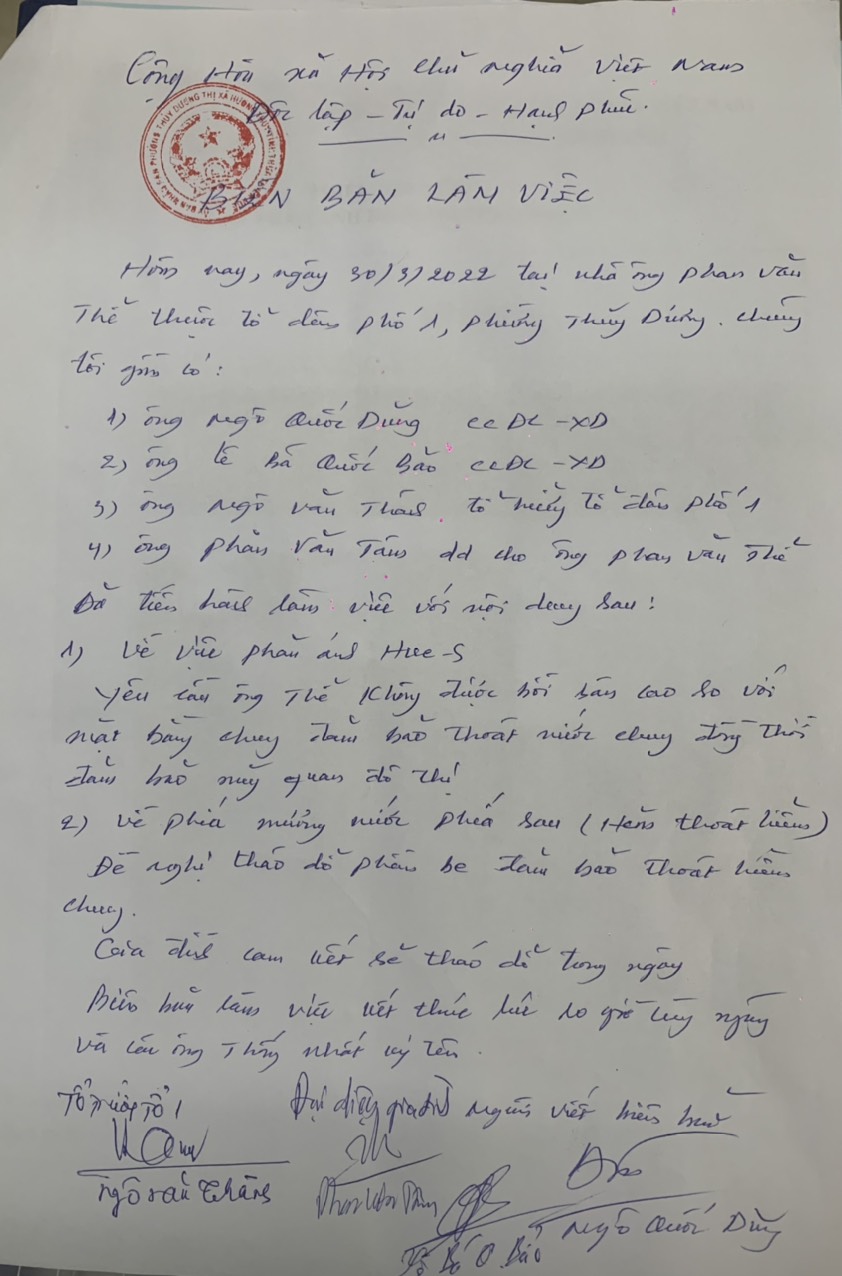 Cộng Hòa xã Hội chủ nghĩa Việt Nam
Độc lập - Tự do - Hạnh phúc.
BIÊN BẢN LÀM VIỆC
Hôm nay, ngày 30/3/2022 tại nhà ông phan văn
Thế thuộc tổ dân phố 1, phường Thủy Dương. chúng
tôi gồm có:
1) ông Ngô Quốc Dũng CCĐC - XD
2) ông Lê Bá Quốc Bảo CCĐC - XD
3) ông Ngô Văn Thành tổ trưởng tổ dân phố 1
4) ông phan Văn Tám dd cho ông phan văn Thế
Đã tiến hành làm việc với nội dung sau:
1) Về việc phản ánh Hue-S
Yêu cầu ông Thế không được bồi sân cao so với
mặt bằng chung đảm bảo thoát nước chung đồng thời
đảm bảo mỹ quan đô thị
2) Về phía mương nước phía sau (Hẻm thoát hiểm)
Đề nghị tháo dỡ phần be đảm bảo thoát hiểm
chung.
Gia đình cam kết sẽ tháo dỡ trong ngày
Biên bản làm việc kết thúc lúc 10 giờ cùng ngày
và các ông thống nhất ký tên.
Tổ trưởng Tổ 1 Đại diện gia đình Người viết biên bản
Ngô văn Thành Phan Văn Tám
Lê Bá Q Bảo Ngô Quốc Dũng